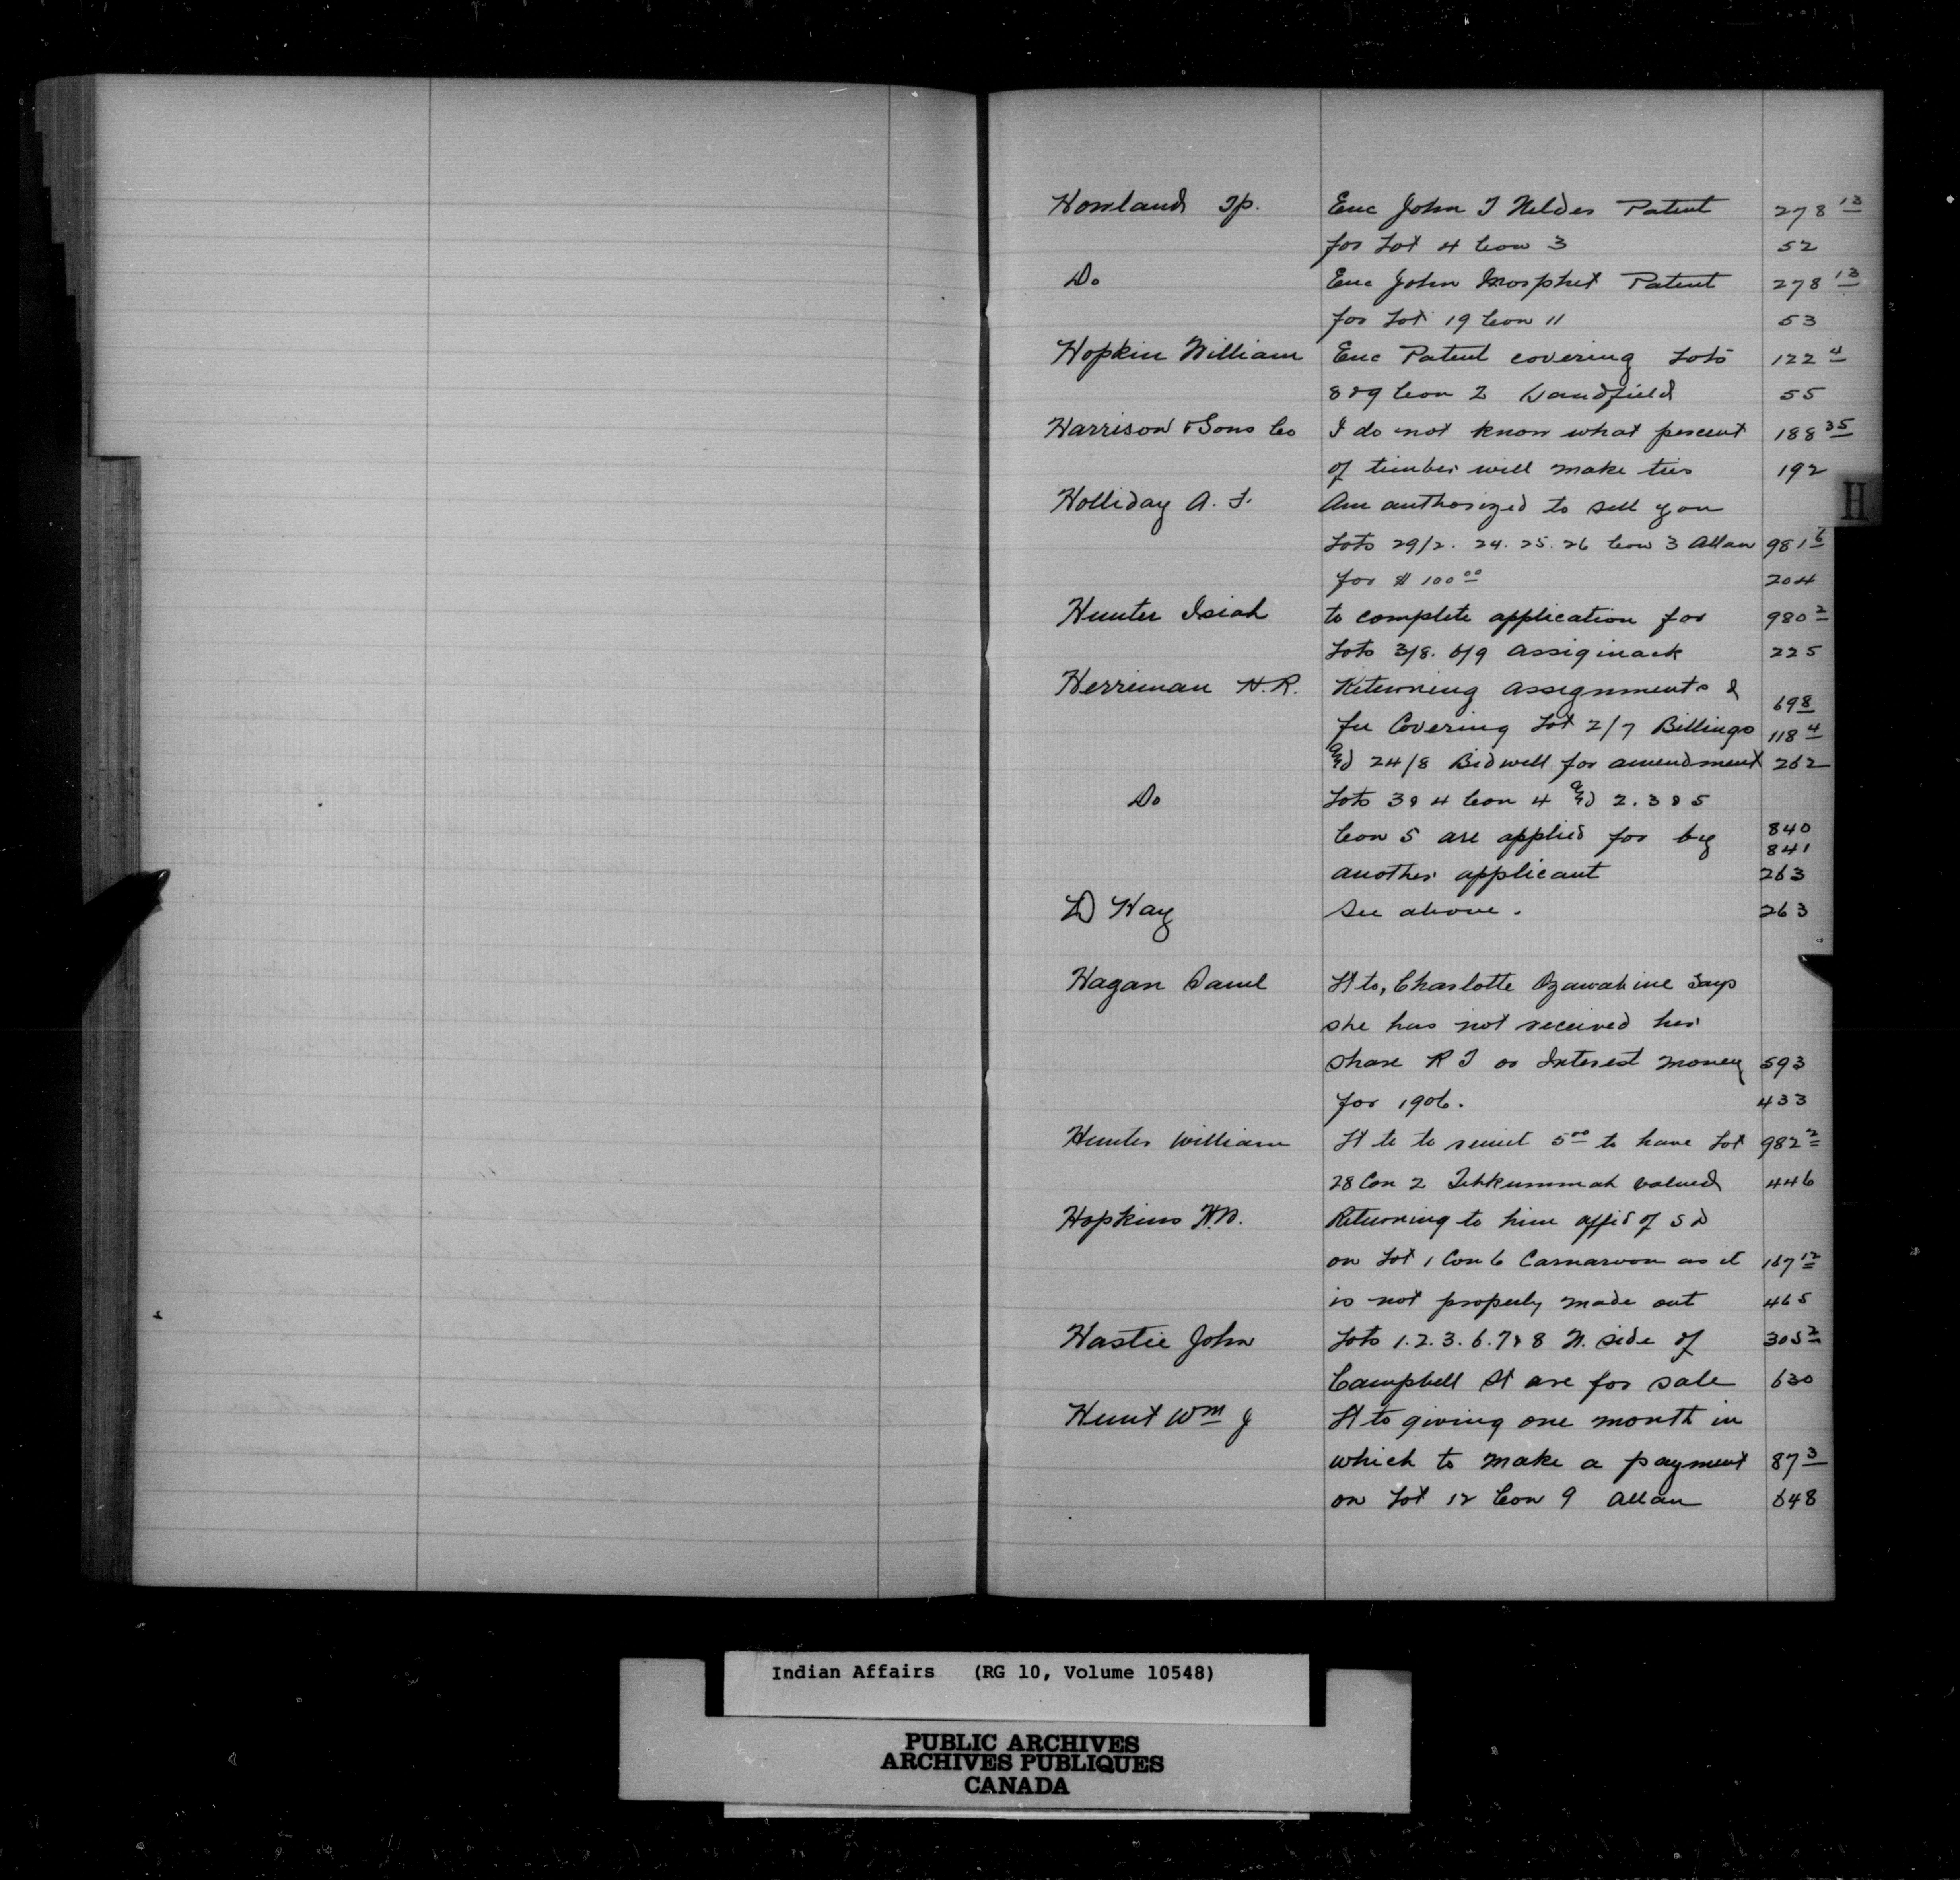 Howland Tp. Enc John T Nelder Patent 278 13
for Lot 4 Con 3 52
Do Enc John Mosphet Patent 278 13
for Lot 19 Con 11 53
Hopkin William Enc Patent covering Lots 122 4
8 & 9 Con 2 Sandfield 55
Harrison & Sons Co I do not know what percent 188 35
of timber will make ties 192
H
Holliday A. F. Am authorized to sell you
Lots 29/2. 24. 25. 26 Con 3 Allan 981 6
for $ 100 00 204
Hunter Isiah to complete application for 980 2
Lots 3/8. 6/9 Assiginack 225
Herriman H. R. Returning assignments & 698
fee Covering Lot 2/7 Billings 118 4
and 24/8 Bidwell for amendment 262
Do Lots 3 & 4 Con 4 and 2. 3 & 5
Con 5 are applied for by 840
841
another applicant 263
D Hay See above. 263
Hagan Saml Lt to, Charlotte Ozawabine says
she has not received her
share R T or Interest money 593
for 1906. 433
Hunter William Lt to to remit 5 00 to have Lot 982 2
28 Con 2 Tehkummah valued 446
Hopkins W.W. Returning to him affid of S D
on Lot 1 Con 6 Carnarvon as it 167 12
is not properly made out 465
Hastie John Lots 1. 2. 3. 6. 7 & 8 N. side of 305 2
Campbell St are for sale 630
Hunt Wm J Lt to giving one month in
which to make a payment 87 3
on Lot 12 Con 9 Allan 648
Indian Affairs (RG 10, Volume 10548)
PUBLIC ARCHIVES
ARCHIVES PUBLIQUES
CANADA